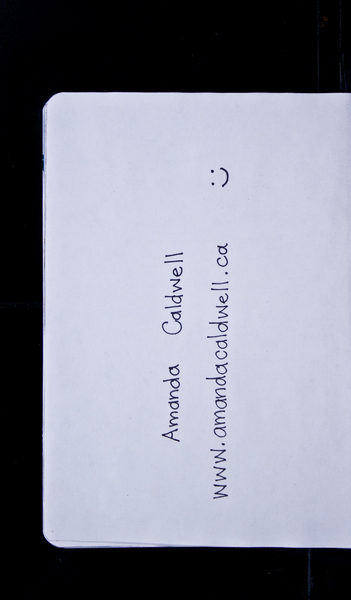 Amanda Caldwell
www.amandacaldwell.ca :)